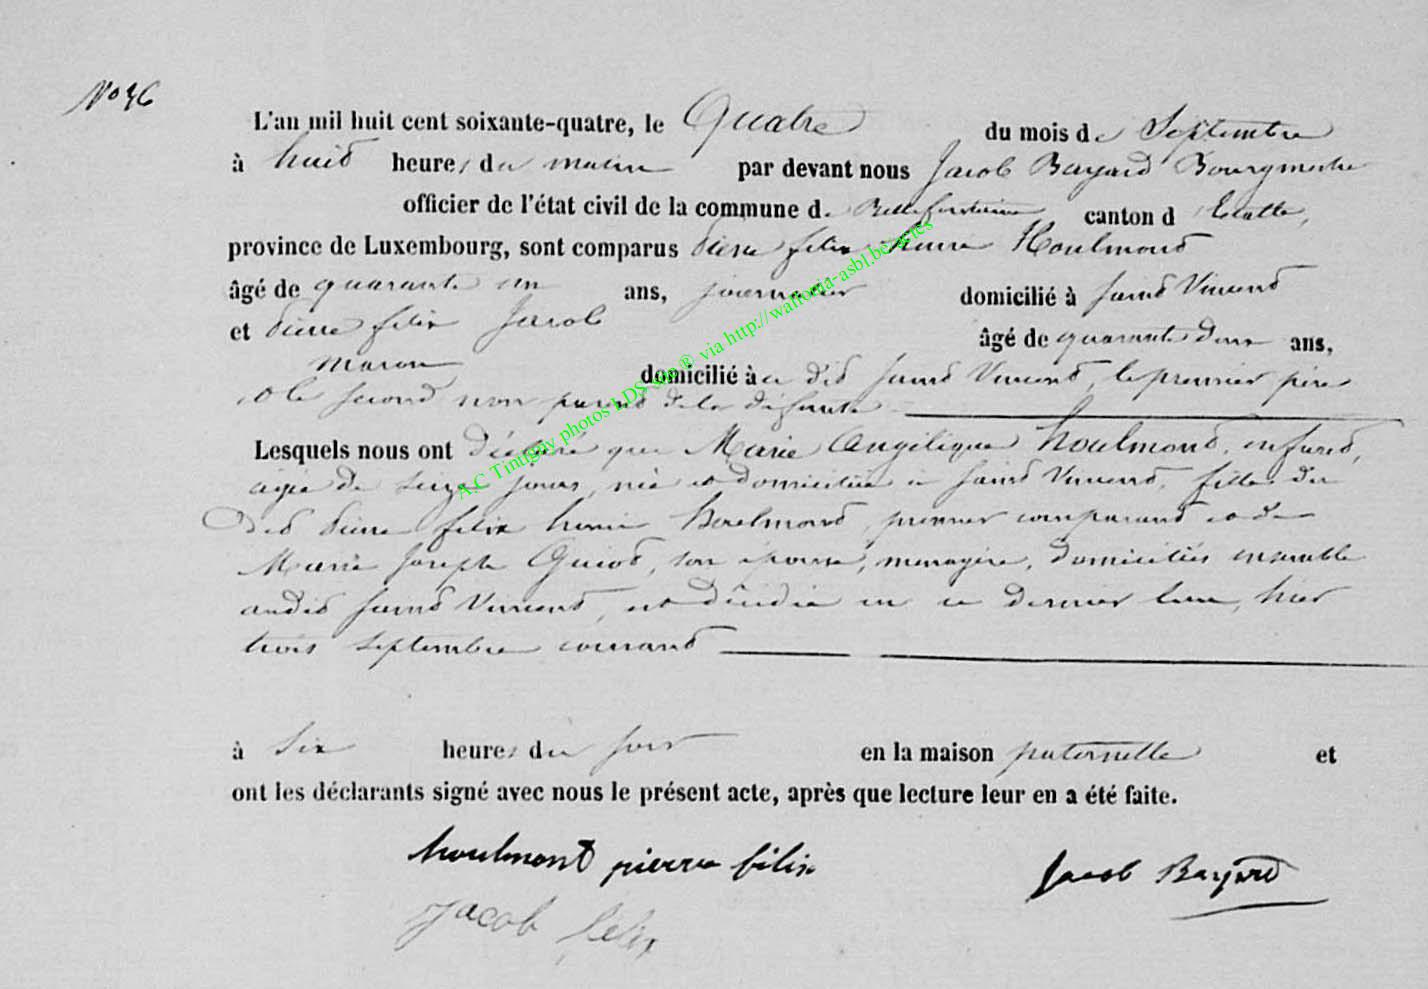 No 36
L'an mil huit cent soixante-quatre, le Quatre du mois de Septembre
à huit heures du matin par devant nous Jacob Bayard Bourgmestre
officier de l'état civil de la commune de Bellefontaine canton d'Etalle,
province de Luxembourg, sont comparus Pierre felix henri Houlmont
âgé de quarante un ans, journalier domicilié à Saint Vincent
et Pierre felix Jacob âgé de quarante deux ans,
domicilié à a dit Saint Vincent, le premier père
& le second non parent de la défunte
Lesquels nous ont déclaré que Marie Angélique houlmont, enfant,
agée de seize jours, née et domiciliée a Saint Vincent, fille du
dit Pierre felix henri Houlmont, premier comparant et de
Marie Joseph Guiot, son épouse, menagère, domiciliés ensemble
audit Saint Vincent, est décédée en ce dernier lieu, hier
trois septembre courant
à six heures du soir en la maison paternelle et
ont les déclarants signé avec nous le présent acte, après que lecture leur en a été faite.
houlmont pierre félix
Jacob Bayard
Jacob felix
A.C Tintigny photos LDS sgp ® via http://wallonia-asbl.be/actes